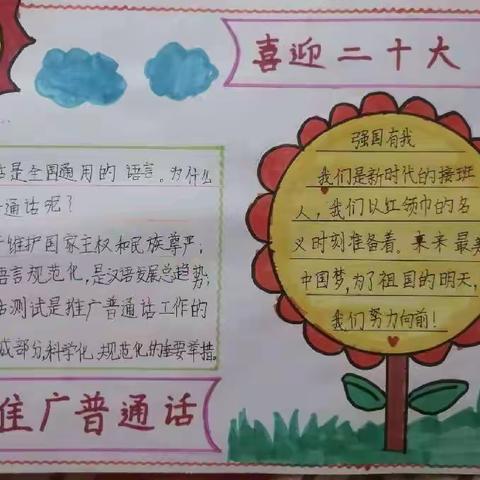 喜迎二十大
话是全国通用的语言。为什么
通话呢?
维护国家主权和民族尊严;
语言规范化,是汉语发展总趋势;
测试是推广普通话工作的
成部分,科学化、规范化的重要举措。
推广普通话
强国有我
我们是新时代的接班
人,我们以红领巾的名
义时刻准备着。未来最美
中国梦,为了祖国的明天,
我们努力向前!